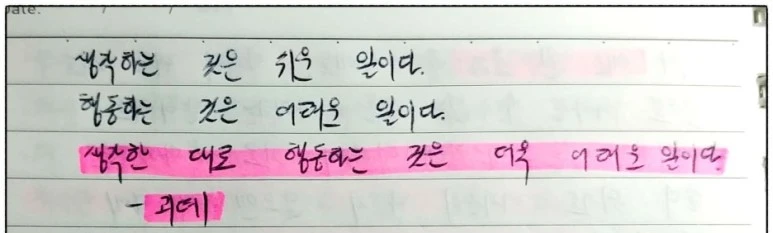 Date.
생각하는 것은 쉬운 일이다.
행동하는 것은 어려운 일이다.
생각한 대로 행동하는 것은 더욱 어려운 일이다
- 괴테